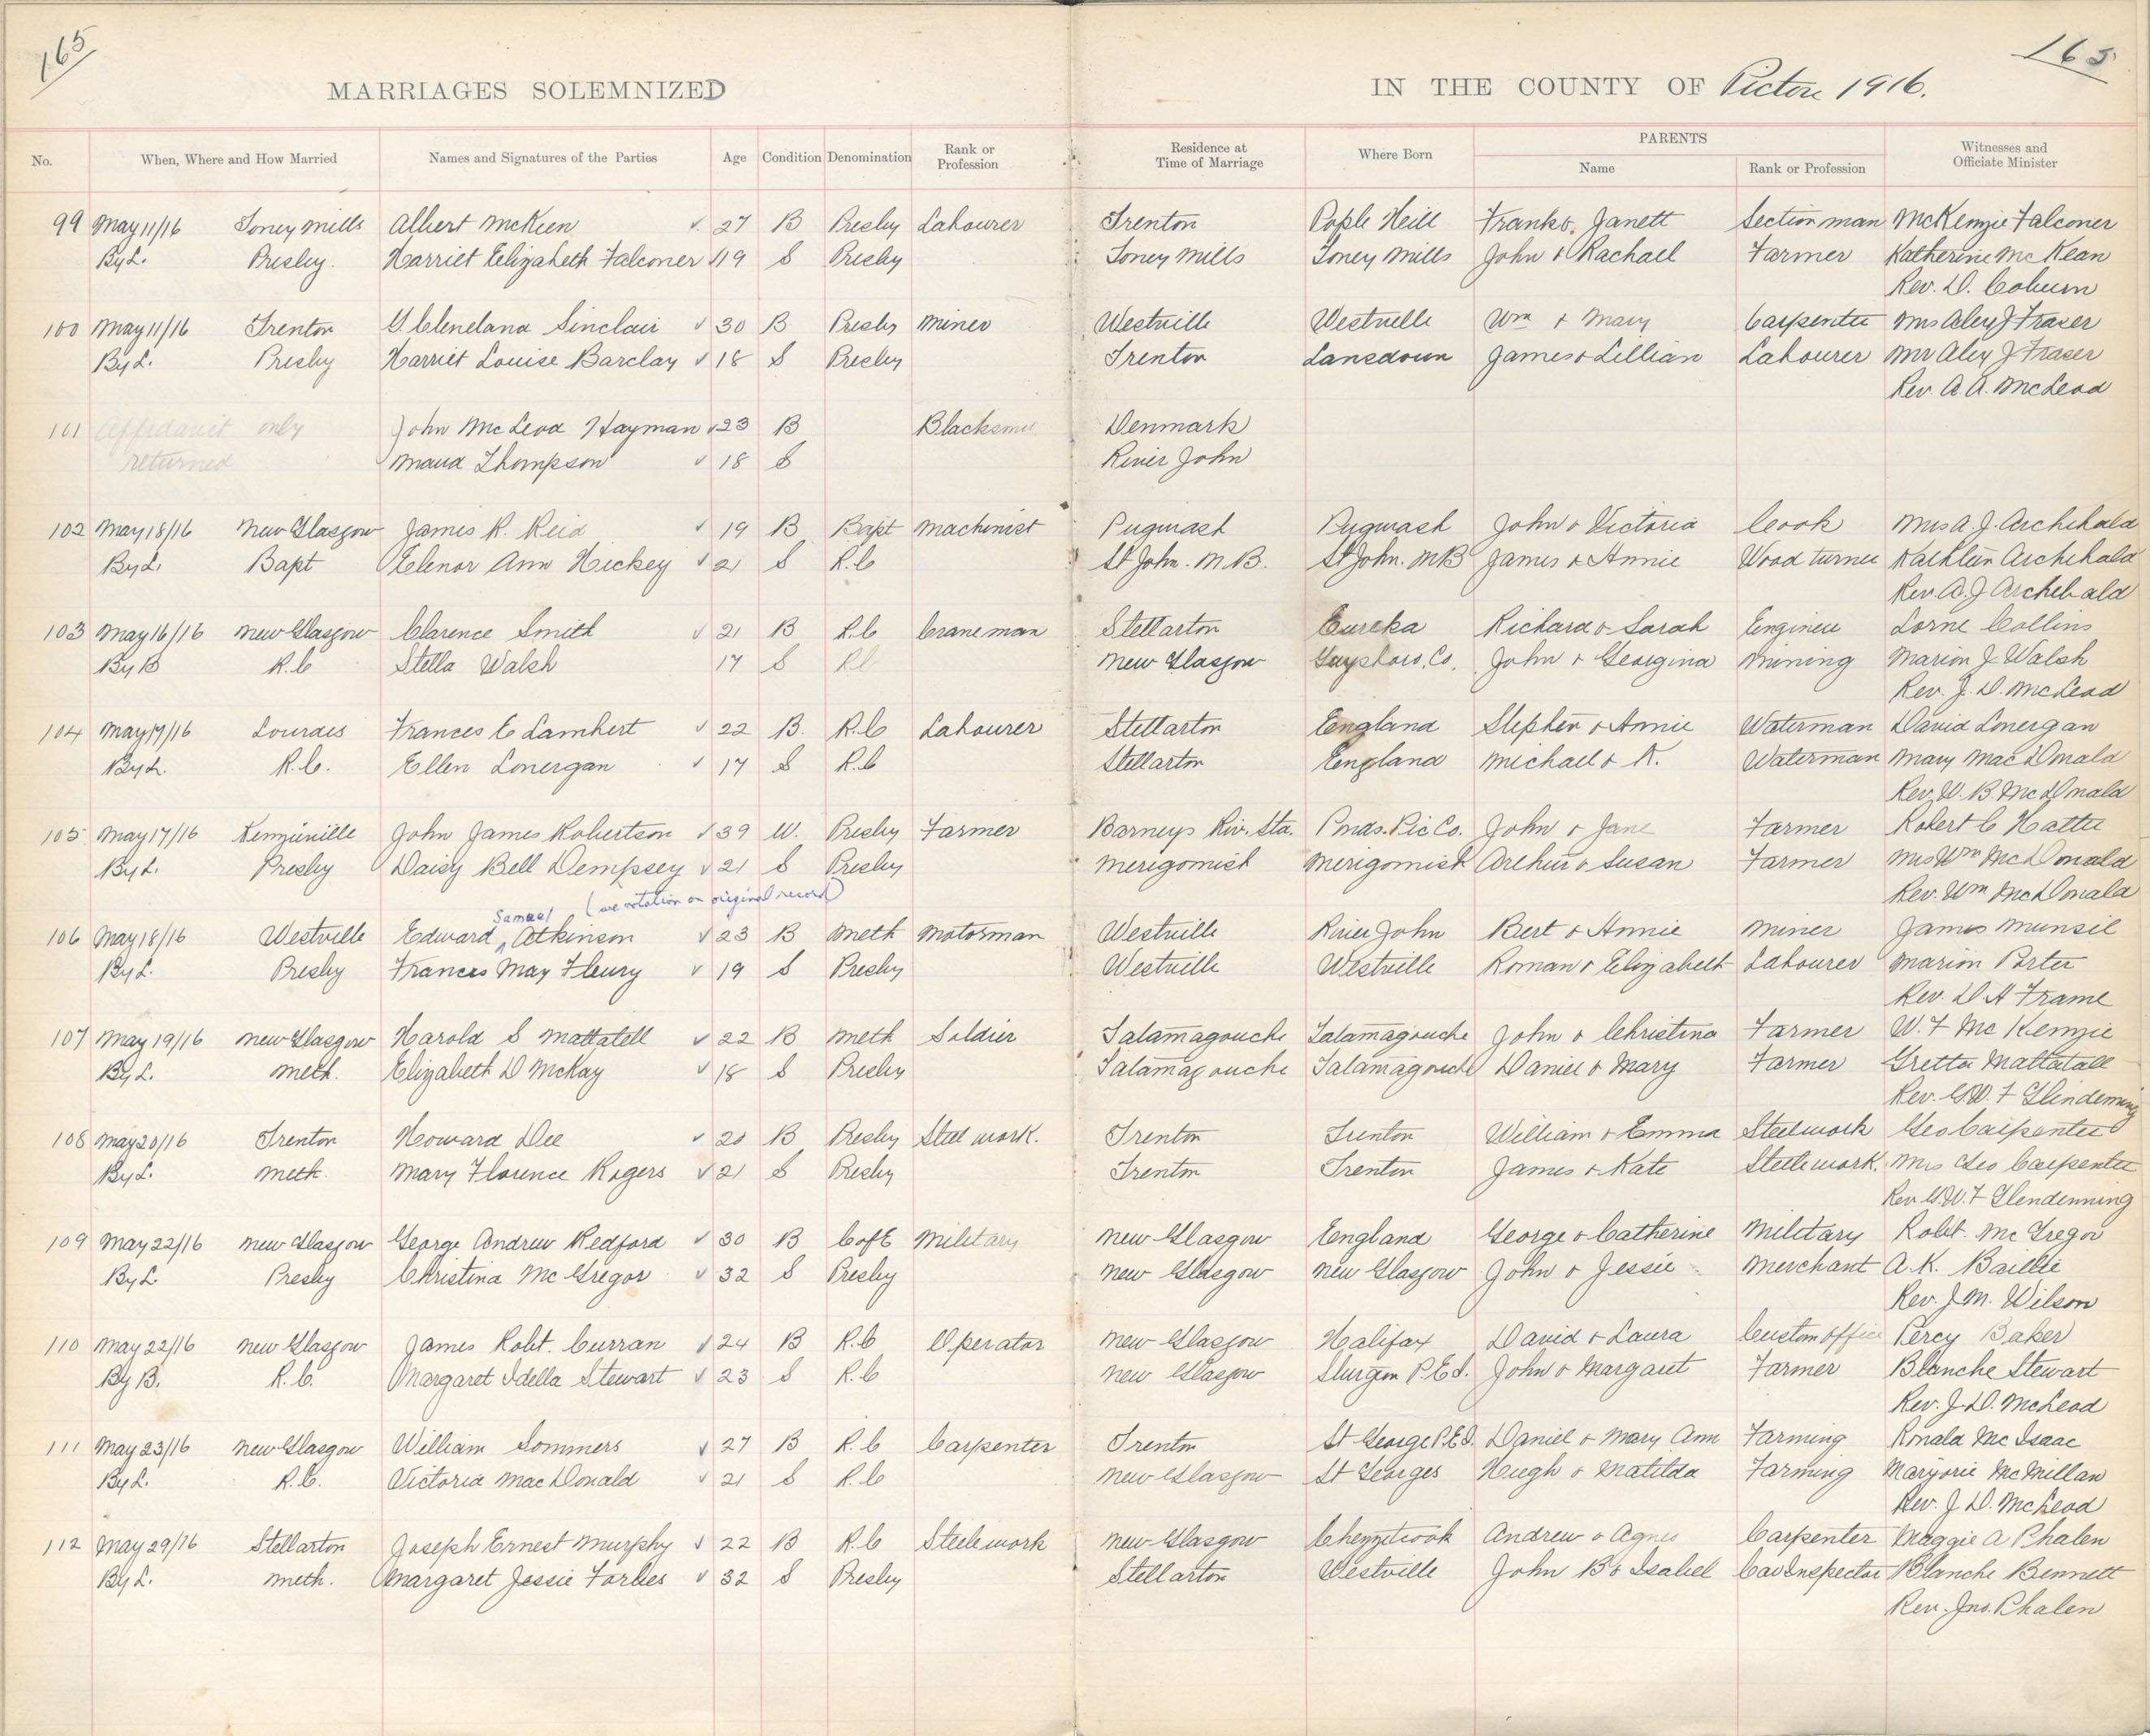 165
165
MARRIAGES SOLEMNIZED IN THE COUNTY OF Pictou 1916.
No. When, Where and How Married Names and Signatures of the Parties Age Condition Denomination Rank or Profession Residence at Time of Marriage Where Born PARENTS Name Rank or Profession Witnesses and Officiate Minister
99 May 11/16 Toney Mills Albert McKeen ✓ 27 B Presby Labourer Trenton Pople Hill Frank & Janett Section man McKenzie Falconer
By L. Presby. Harriet Elizabeth Falconer ✓ 19 S Presby Toney Mills Toney Mills John & Rachael Farmer Katherine McKean
Rev. D. Coburn
100 May 11/16 Trenton G. Cleneland Sinclair ✓ 30 B Presby Miner Westville Westville Wm & Mary Carpenter Mrs Alex J Fraser
By L. Presby Harriet Louise Barclay ✓ 18 S Presby Trenton Lansdown James & Lillian Labourer Mr Alex J Fraser
Rev. A. A. McLeod
101 Affidavit only John McLeod Hayman ✓ 23 B Blacksmi Denmark
returned Maud Thompson ✓ 18 S River John
102 May 18/16 New Glasgow James R. Reid ✓ 19 B Bapt Machinist Pugwash Pugwash John & Victoria Cook Mrs A. J. Archibald
By L. Bapt Elenor Ann Hickey ✓ 21 S R.C St John. N.B. St John. NB James & Annie Wood turner Kathleen Archibald
Rev. A. J Archibald
103 May 16/16 New Glasgow Clarence Smith ✓ 21 B R.C Craneman Stellarton Eureka Richard & Sarah Engineer Lorne Collins
By B R.C Stella Walsh 17 S RC New Glasgow Guysboro, Co. John & Georgina Mining Marion J Walsh
Rev. J. D. McLeod
104 May 17/16 Lourdes Frances C Lambert ✓ 22 B. R.C Labourer Stellarton England Stephen & Annie Waterman David Lonergan
By L. R.C. Ellen Lonergan ✓ 17 S R.C Stellarton England Michael & K. Waterman Mary MacDonald
Rev. W. B. McDonald
105 May 17/16 Kenzieville John James Robertson ✓ 39 W. Presby Farmer Barneys Riv. Sta. Pmds. Pic Co. John & Jane Farmer Robert C Hattie
By L. Presby Daisy Bell Dempsey ✓ 21 S Presby Merigomish Merigomish Arthur & Susan Farmer Mrs Wm McDonald
Rev. Wm McDonald
Samuel (see notation on original record)
106 May 18/16 Westville Edward Atkinson ✓ 23 B Meth Motorman Westville River John Bert & Annie Miner James Munsil
By L. Presby Frances May Fleury ✓ 19 S Presby Westville Westville Roman & Elizabeth Labourer Marion Porter
Rev. D A Frame
107 May 19/16 New Glasgow Harold S Mattatell ✓ 22 B Meth Soldier Tatamagouche Tatamagouche John & Christina Farmer W. F McKenzie
By L. Meth. Elizabeth D McKay ✓ 18 S Presby Tatamagouche Tatamagouche Daniel & Mary Farmer Gretta Mattatall
Rev. G.W. F Glindenning
108 May 20/16 Trenton Howard Dee ✓ 20 B Presby Steel work. Trenton Trenton William & Emma Steelwork Geo Carpenter
By L. Meth. Mary Florence Rogers ✓ 21 S Presby Trenton Trenton James & Kate Steelework. Mrs Geo Carpenter
Rev G.W. F Glendenning
109 May 22/16 New Glasgow George Andrew Redford ✓ 30 B C of E Military New Glasgow England George & Catherine Military Robt. McGregor
By L. Presby Christina McGregor ✓ 32 S Presby New Glasgow New Glasgow John & Jessie Merchant A. K. Baillie
Rev. J. M. Wilson
110 May 22/16 New Glasgow James Robt. Curran ✓ 24 B R.C Operator New Glasgow Halifax David & Laura Custom office Percy Baker
By B. R.C. Margaret Idella Stewart ✓ 23 S R.C New Glasgow Sturgeon P.Ed. John & Margaret Farmer Blanche Stewart
Rev. J. D. McLeod
111 May 23/16 New Glasgow William Sommers ✓ 27 B R.C Carpenter Trenton St George P.E.I. Daniel & Mary Ann Farming Ronald McIsaac
By L. R.C. Victoria MacDonald ✓ 21 S R.C New Glasgow St Georges Hugh & Matilda Farming Marjorie McMillan
Rev. J. D. McLeod
112 May 29/16 Stellarton Joseph Ernest Murphy ✓ 22 B R.C Steelework New Glasgow Chezzetcook Andrew & Agnes Carpenter Maggie A Phalen
By L. Meth. Margaret Jessie Forbes ✓ 32 S Presby Stellarton Westville John B & Isabel Car Inspector Blanche Bennett
Rev. Jno. Phalen